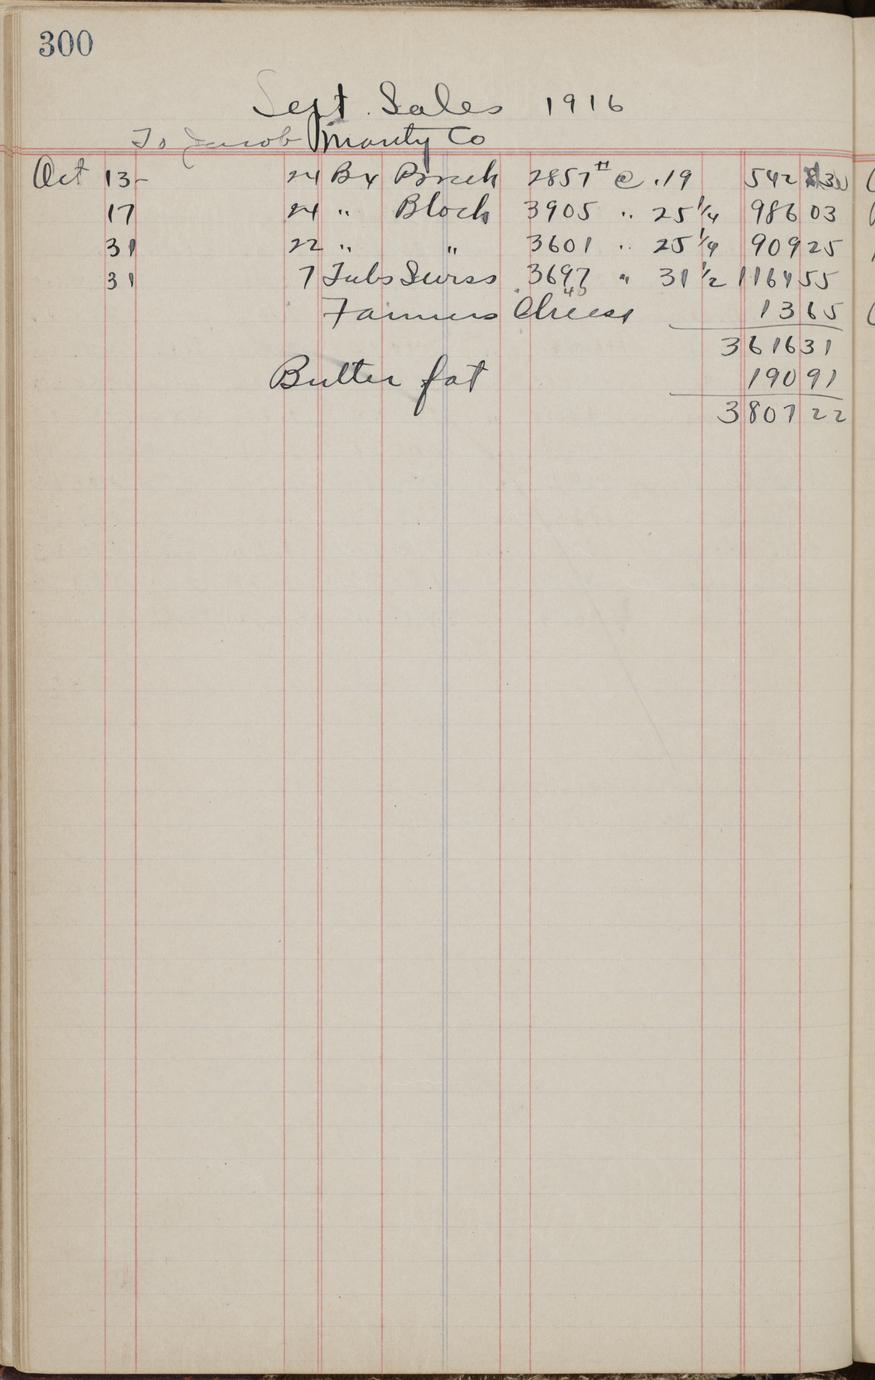 300
Sept. Sales 1916
To Jacob Marty Co
Oct 13 - 24 Bx Brick 2857 # @ .19 542 83
17 24 " Block 3905 " 25 1/4 986 03
31 22 " " 3601 " 25 1/4 909 25
31 7 Tubs Swiss 3697 " 31 1/2 1164 55
Farmers Cheese 13 65
3616 31
Butter fat 190 91
3807 22